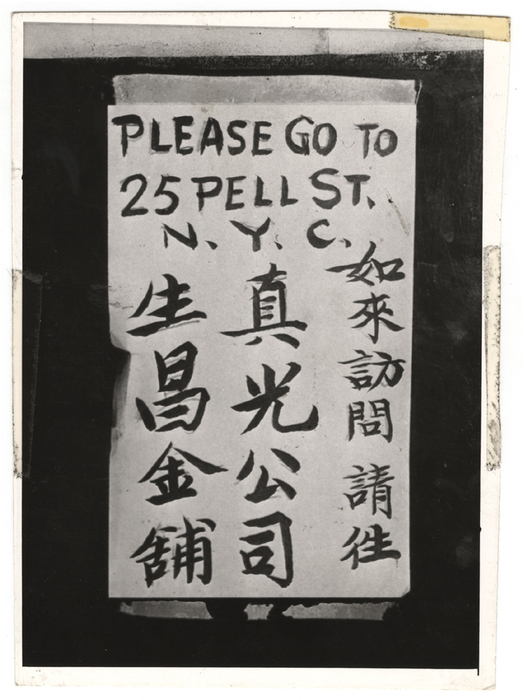 PLEASE GO TO
25 PELL ST.
N. Y. C.
如來訪問 請徃
真光公司
生昌金舖